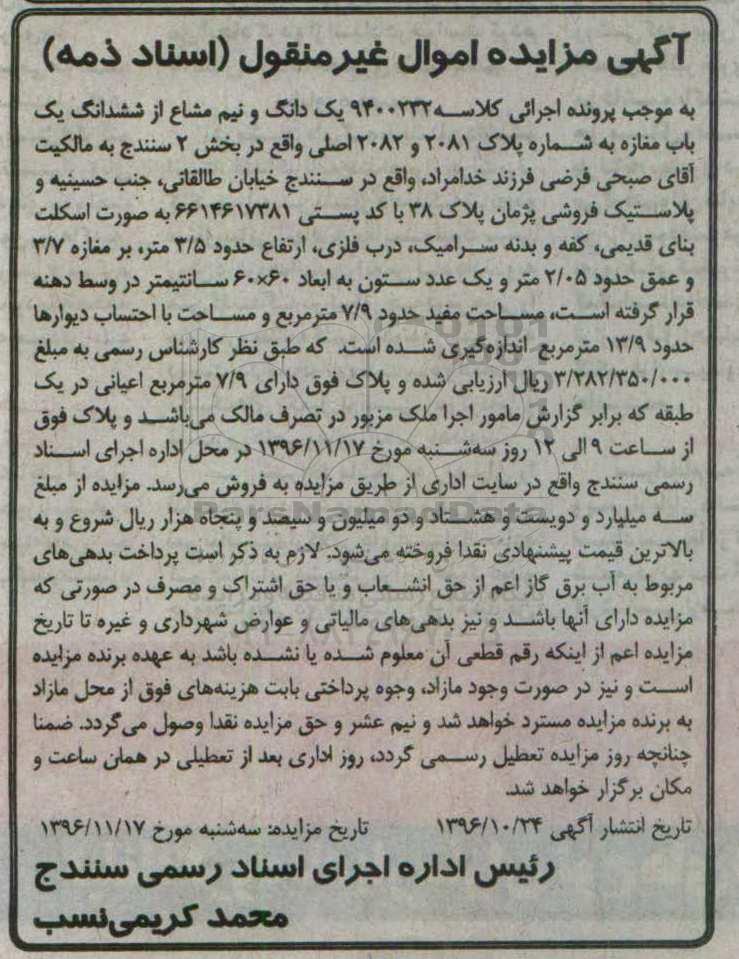 آگهی مزایده اموال غیرمنقول (اسناد ذمه)
به موجب پرونده اجرائی کلاسه ۹۴۰۰۲۳۲ یک دانگ و نیم مشاع از ششدانگ یک
باب مغازه به شماره پلاک ۲۰۸۱ و ۲۰۸۲ اصلی واقع در بخش ۲ سنندج به مالکیت
آقای صبحی فرضی فرزند خدامراد، واقع در سنندج خیابان طالقانی، جنب حسینیه و
پلاستیک فروشی پژمان پلاک ۳۸ با کد پستی ۶۶۱۴۶۱۷۳۸۱ به صورت اسکلت
بنای قدیمی، کفه و بدنه سرامیک، درب فلزی، ارتفاع حدود ۳/۵ متر، بر مغازه ۳/۷
و عمق حدود ۲/۰۵ متر و یک عدد ستون به ابعاد ۶۰×۶۰ سانتیمتر در وسط دهنه
قرار گرفته است، مساحت مفید حدود ۷/۹ مترمربع و مساحت با احتساب دیوارها
حدود ۱۳/۹ مترمربع اندازه‌گیری شده است. که طبق نظر کارشناس رسمی به مبلغ
۳/۲۸۲/۳۵۰/۰۰۰ ریال ارزیابی شده و پلاک فوق دارای ۷/۹ مترمربع اعیانی در یک
طبقه که برابر گزارش مامور اجرا ملک مزبور در تصرف مالک می‌باشد و پلاک فوق
از ساعت ۹ الی ۱۲ روز سه‌شنبه مورخ ۱۳۹۶/۱۱/۱۷ در محل اداره اجرای اسناد
رسمی سنندج واقع در سایت اداری از طریق مزایده به فروش می‌رسد. مزایده از مبلغ
سه میلیارد و دویست و هشتاد و دو میلیون و سیصد و پنجاه هزار ریال شروع و به
بالاترین قیمت پیشنهادی نقدا فروخته می‌شود. لازم به ذکر است پرداخت بدهی‌های
مربوط به آب برق گاز اعم از حق انشعاب و یا حق اشتراک و مصرف در صورتی که
مزایده دارای آنها باشد و نیز بدهی‌های مالیاتی و عوارض شهرداری و غیره تا تاریخ
مزایده اعم از اینکه رقم قطعی آن معلوم شده یا نشده باشد به عهده برنده مزایده
است و نیز در صورت وجود مازاد، وجوه پرداختی بابت هزینه‌های فوق از محل مازاد
به برنده مزایده مسترد خواهد شد و نیم عشر و حق مزایده نقدا وصول می‌گردد. ضمنا
چنانچه روز مزایده تعطیل رسمی گردد، روز اداری بعد از تعطیلی در همان ساعت و
مکان برگزار خواهد شد.
تاریخ انتشار آگهی ۱۳۹۶/۱۰/۲۴ تاریخ مزایده: سه‌شنبه مورخ ۱۳۹۶/۱۱/۱۷
رئیس اداره اجرای اسناد رسمی سنندج
محمد کریمی‌نسب
ParsNamadData